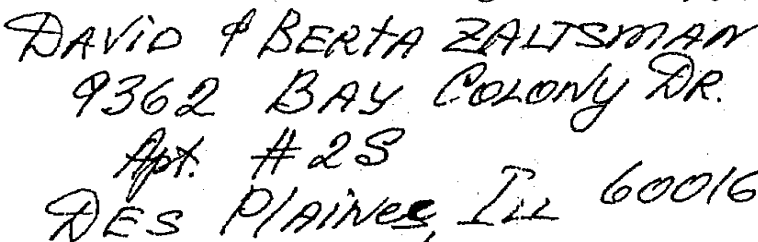 DAVID & BERTA ZALTSMAN
9362 BAY COLONY DR.
Apt. #2S
DES PlAiNes, Ill 60016